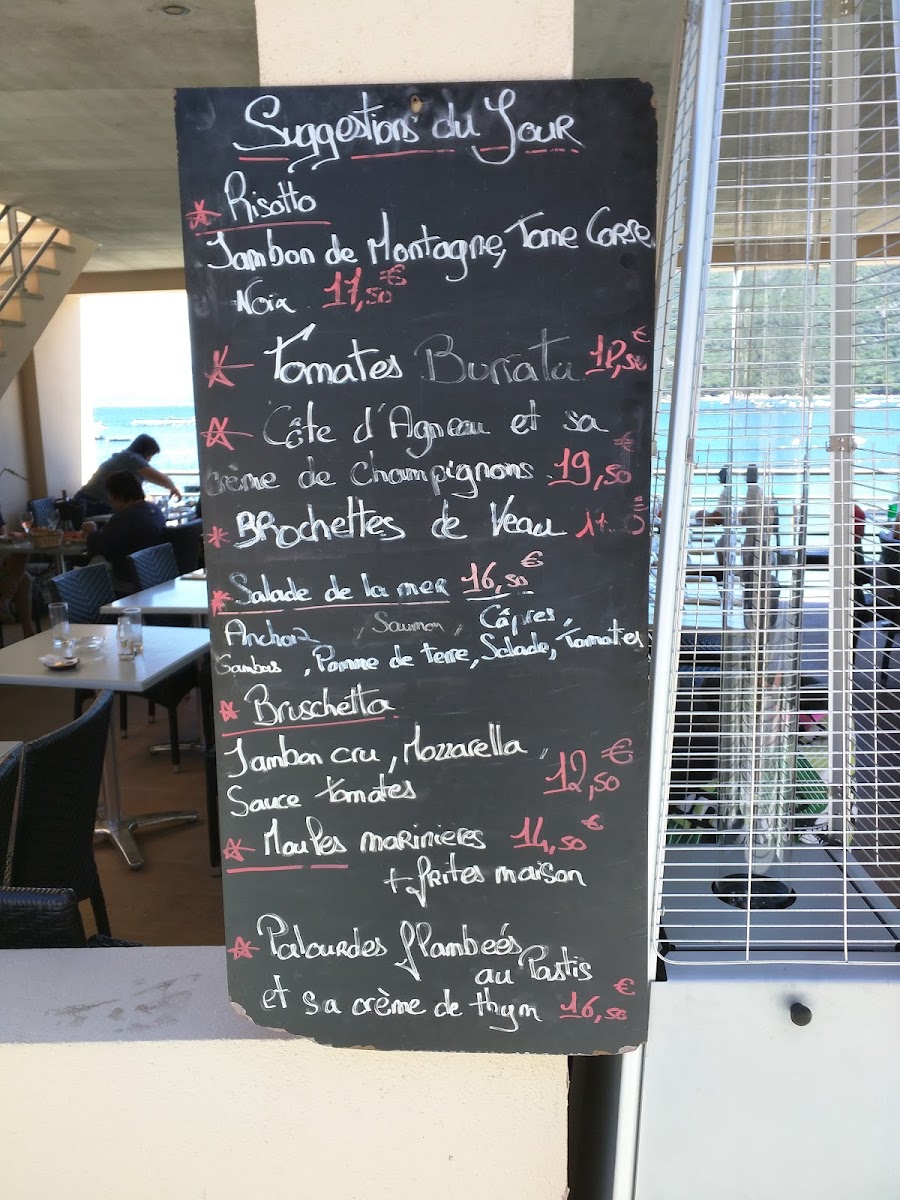 Suggestions du Jour
Risotto
Jambon de Montagne, Tome Corse
Noix 17,50€
Tomates Burrata 12,50€
Côte d'Agneau et sa
crème de champignons 19,50€
BRochettes de Veau
Salade de la mer 16,50€
, Saumon, Câpres,
, Pomme de terre, Salade, Tomates
Bruschetta
Jambon cru, Mozzarella,
Sauce tomates 12,50€
Moules marinieres 14,50€
+ frites maison
Palourdes flambeés
au Pastis
et sa crème de thym 16,50€